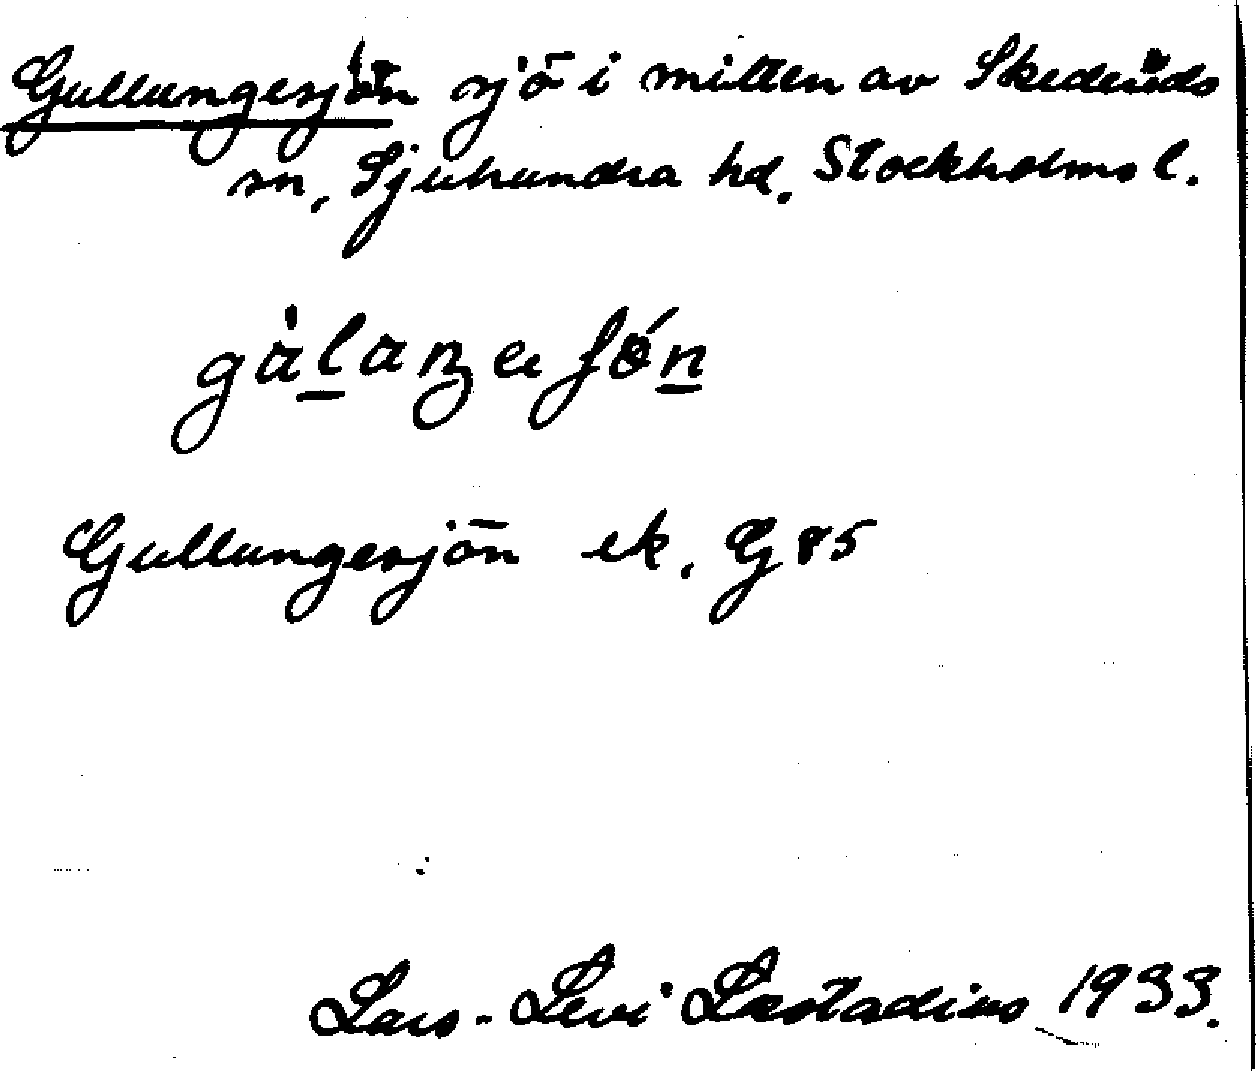 Gullungesjön sjö i mitten av Skederids
sn, Sjuhundra hd. Stockholms l.
Gullungesjön ek. G 85
Lars-Levi Læstadius 1933.